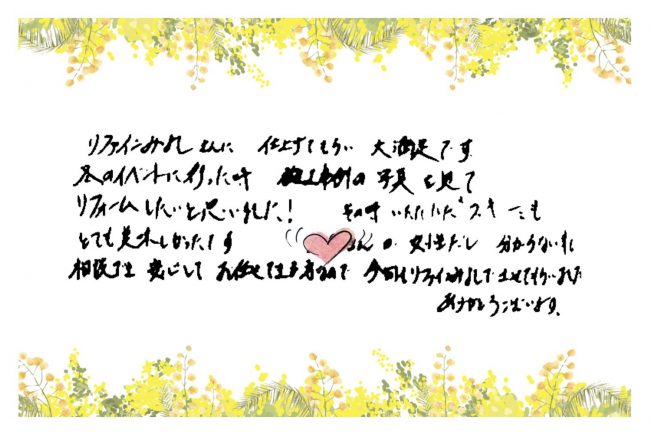 リファインみよしさんに 仕上げてもらい 大満足です
冬のイベントに行った時 施工事例の写真を見て
リフォームしたいと思いました! その時いただいた
とても美味しかったです さんの 女性だし 分からない事
相談でき 安心して お任せできるので 今回もリファインみよしで させてもらいました
ありがとうございます。